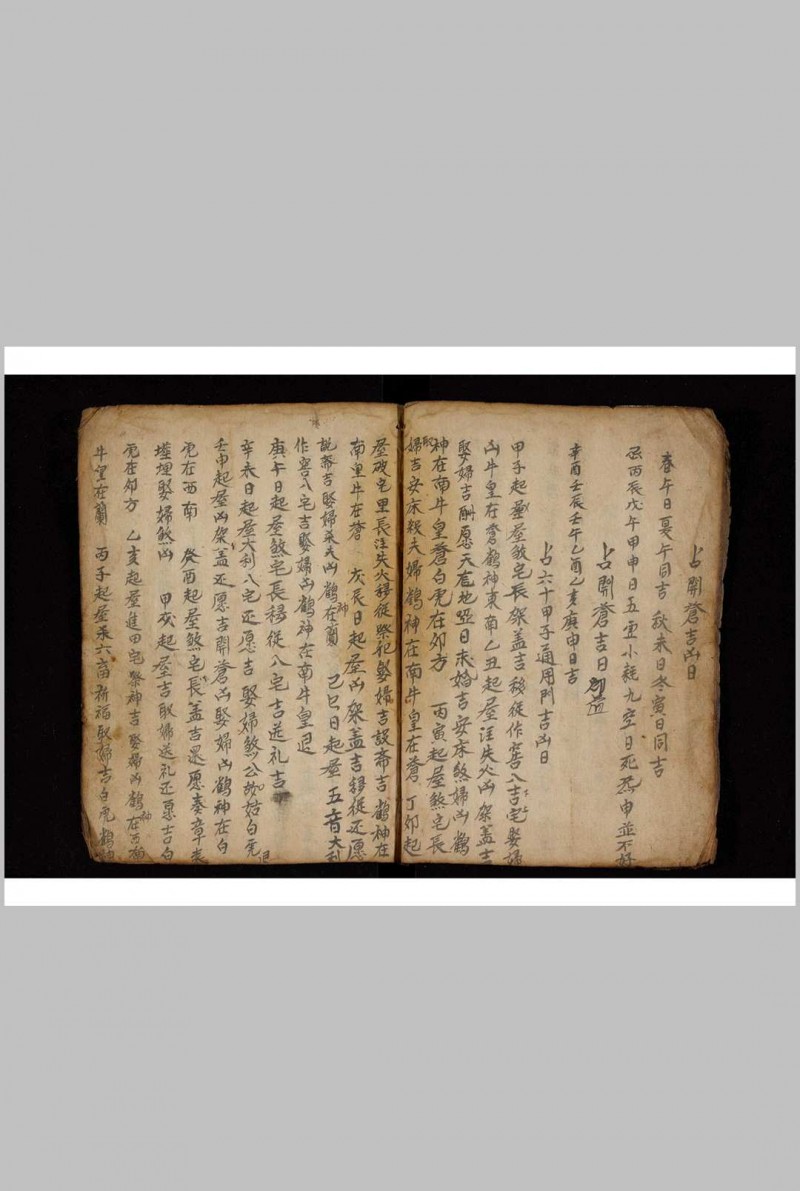 占開蒼吉凶日
春午日夏午同吉 秋未日冬寅日同吉
丙辰戊午甲申日五虛小耗九空日死 申並不好
占開蒼吉日
辛酉壬辰壬午乙酉乙亥庚申日吉
占六十甲子通用門吉凶日
甲子起屋煞宅長架盖吉移徙作窖八吉宅娶婦
凶牛皇在蒼鶴神東南乙丑起屋注失火凶架盖吉
娶婦吉酬愿天 地啞日未婚吉安床煞婦凶鶴
神在南牛皇蒼白虎在卯方 丙寅起屋煞宅長
婦吉安床殺夫婦鶴神在南牛皇在蒼丁卯起
屋破宅里長注失火移徙祭祀娶婦吉設斎吉鶴神在
南里牛在蒼 辰日起屋凶架盖吉移徙还愿
說斎吉娶婦 夫凶鶴神在蘭 己巳日起屋五音大利
作窖入宅吉娶婦凶鶴神在南牛皇
庚午日起屋煞宅長移徙入宅吉送礼吉
辛未日起屋大利八宅还愿吉娶婦煞公故姑白虎
壬申起屋凶架盖还愿吉開蒼凶娶婦凶鶴神在白
虎在西南 癸酉起屋煞宅長盖吉還愿奏章
墳埋娶婦煞凶 甲戌起屋吉取婦送礼还愿吉白
虎在卯方 乙亥起屋進田宅祭神吉娶婦凶鶴神在西南
牛皇在蘭 丙子起屋 六畜祈福取婦吉白虎鶴神